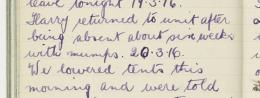 leave tonight 19.3.16.
Harry returned to unit after
being absent about six weeks
with mumps. 20.3.16.
We lowered tents this
morning and were told